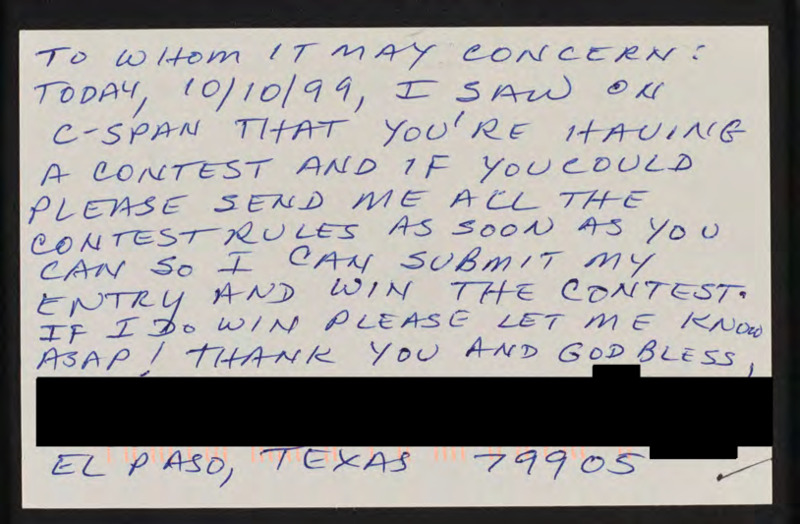 TO WHOM IT MAY CONCERN:
TODAY, 10/10/99, I SAW ON
C-SPAN THAT YOU'RE HAVING
A CONTEST AND IF YOU COULD
PLEASE SEND ME ALL THE
CONTEST RULES AS SOON AS YOU
CAN SO I CAN SUBMIT MY
ENTRY AND WIN THE CONTEST.
IF I DO WIN PLEASE LET ME KNOW
ASAP! THANK YOU AND GOD BLESS,
EL PASO, TEXAS 79905